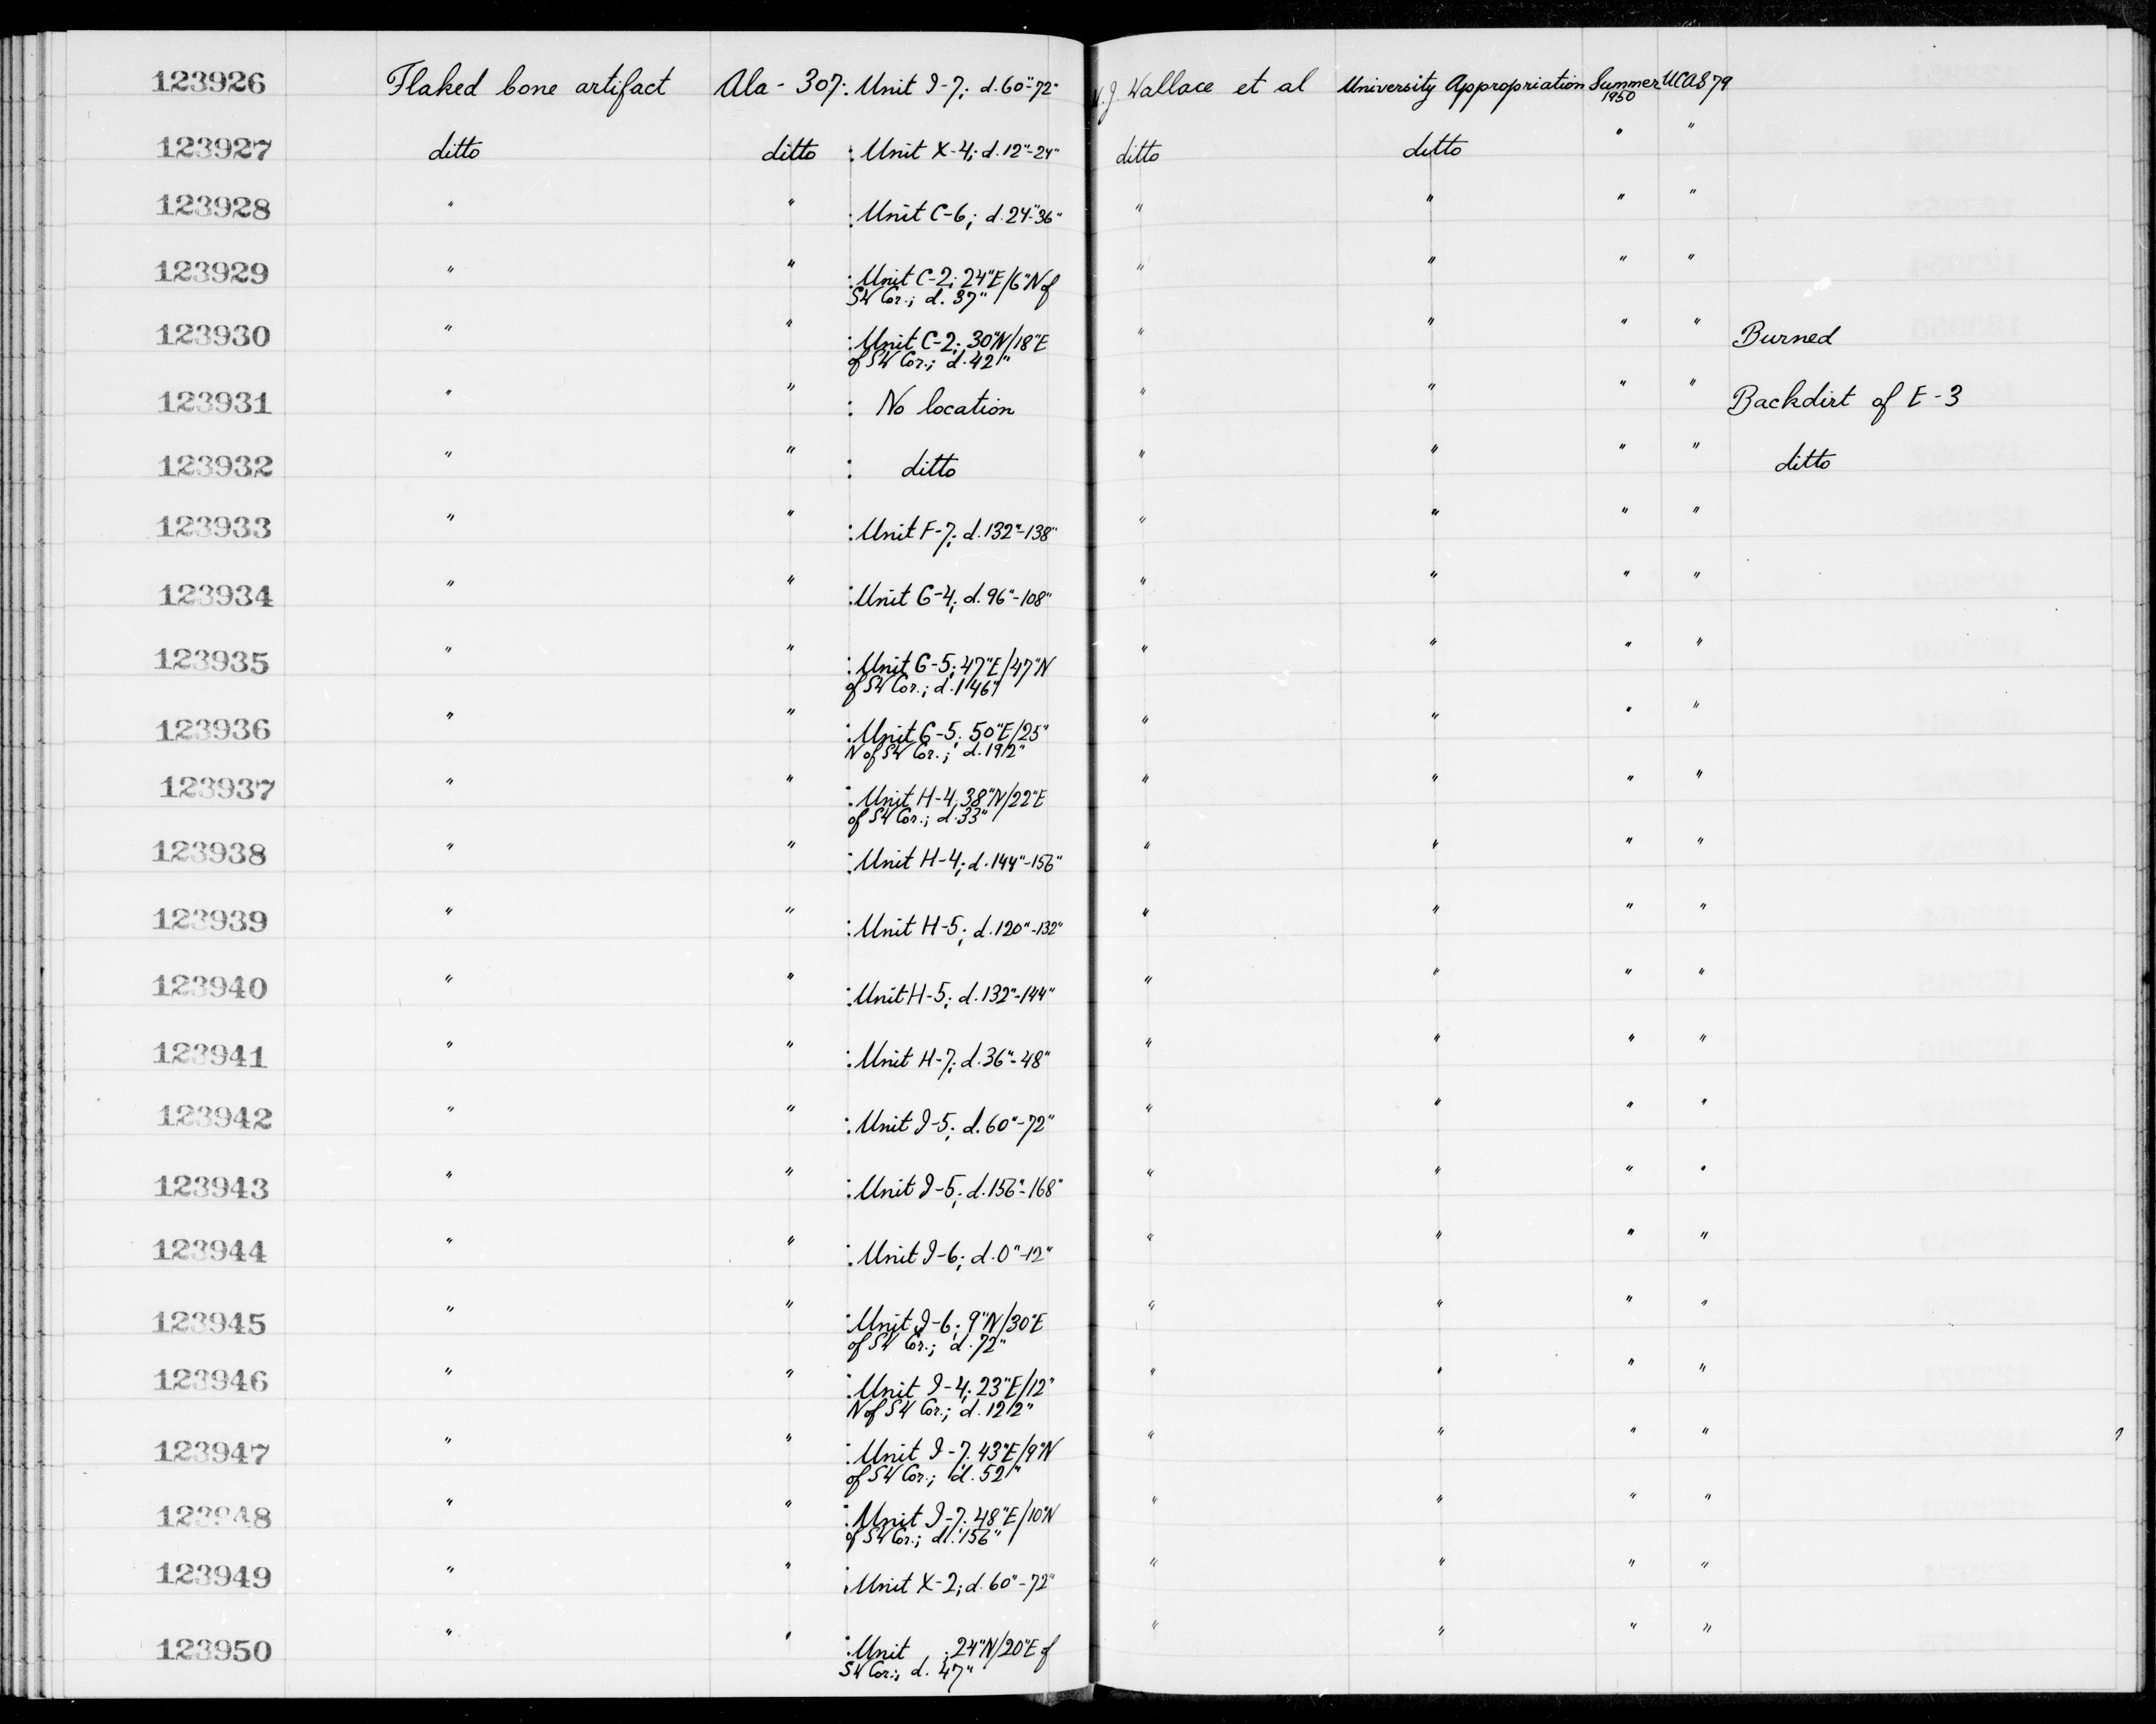 123926 Flaked bone artifact Ala - 307: Unit I-7; d. 60"-72" W.J. Wallace et al University Appropriation Summer 1950 UCAS 79
123927 ditto ditto : Unit X-4; d. 12"-24" ditto ditto " "
123928 " " : Unit C-6; d. 24"-36" " " " "
123929 " " : Unit C-2; 24"E/6"N of " " " "
SW Cor.; d. 37"
123930 " " : Unit C-2; 30"N/18"E " " " " Burned
of SW Cor.; d. 42"
123931 " " : No location " " " " Backdirt of E-3
123932 " " : ditto " " " " ditto
123933 " " : Unit F-7; d. 132"-138" " " " "
123934 " " : Unit G-4; d. 96"-108" " " " "
123935 " " : Unit G-5; 47"E/47"N " " " "
of SW Cor.; d. 146"
123936 " " : Unit G-5; 50"E/25" " " " "
N of SW Cor.; d. 192"
123937 " " : Unit H-4; 38"N/22"E " " " "
of SW Cor.; d. 33"
123938 " " : Unit H-4; d. 144"-156" " " " "
123939 " " : Unit H-5; d. 120"-132" " " " "
123940 " " : Unit H-5; d. 132"-144" " " " "
123941 " " : Unit H-7; d. 36"-48" " " " "
123942 " " : Unit I-5; d. 60"-72" " " " "
123943 " " : Unit I-5; d. 156"-168" " " " "
123944 " " : Unit I-6; d. 0"-12" " " " "
123945 " " : Unit I-6; 9"N/30"E " " " "
of SW Cor.; d. 72"
123946 " " : Unit I-4; 23"E/12" " " " "
N of SW Cor.; d. 122"
123947 " " : Unit I-7; 43"E/9"N " " " "
of SW Cor.; d. 52"
123948 " " : Unit I-7; 48"E/10"N " " " "
of SW Cor.; d. 156"
123949 " " : Unit X-2; d. 60"-72" " " " "
123950 " " : Unit ; 24"N/20"E of " " " "
SW Cor.; d. 47"